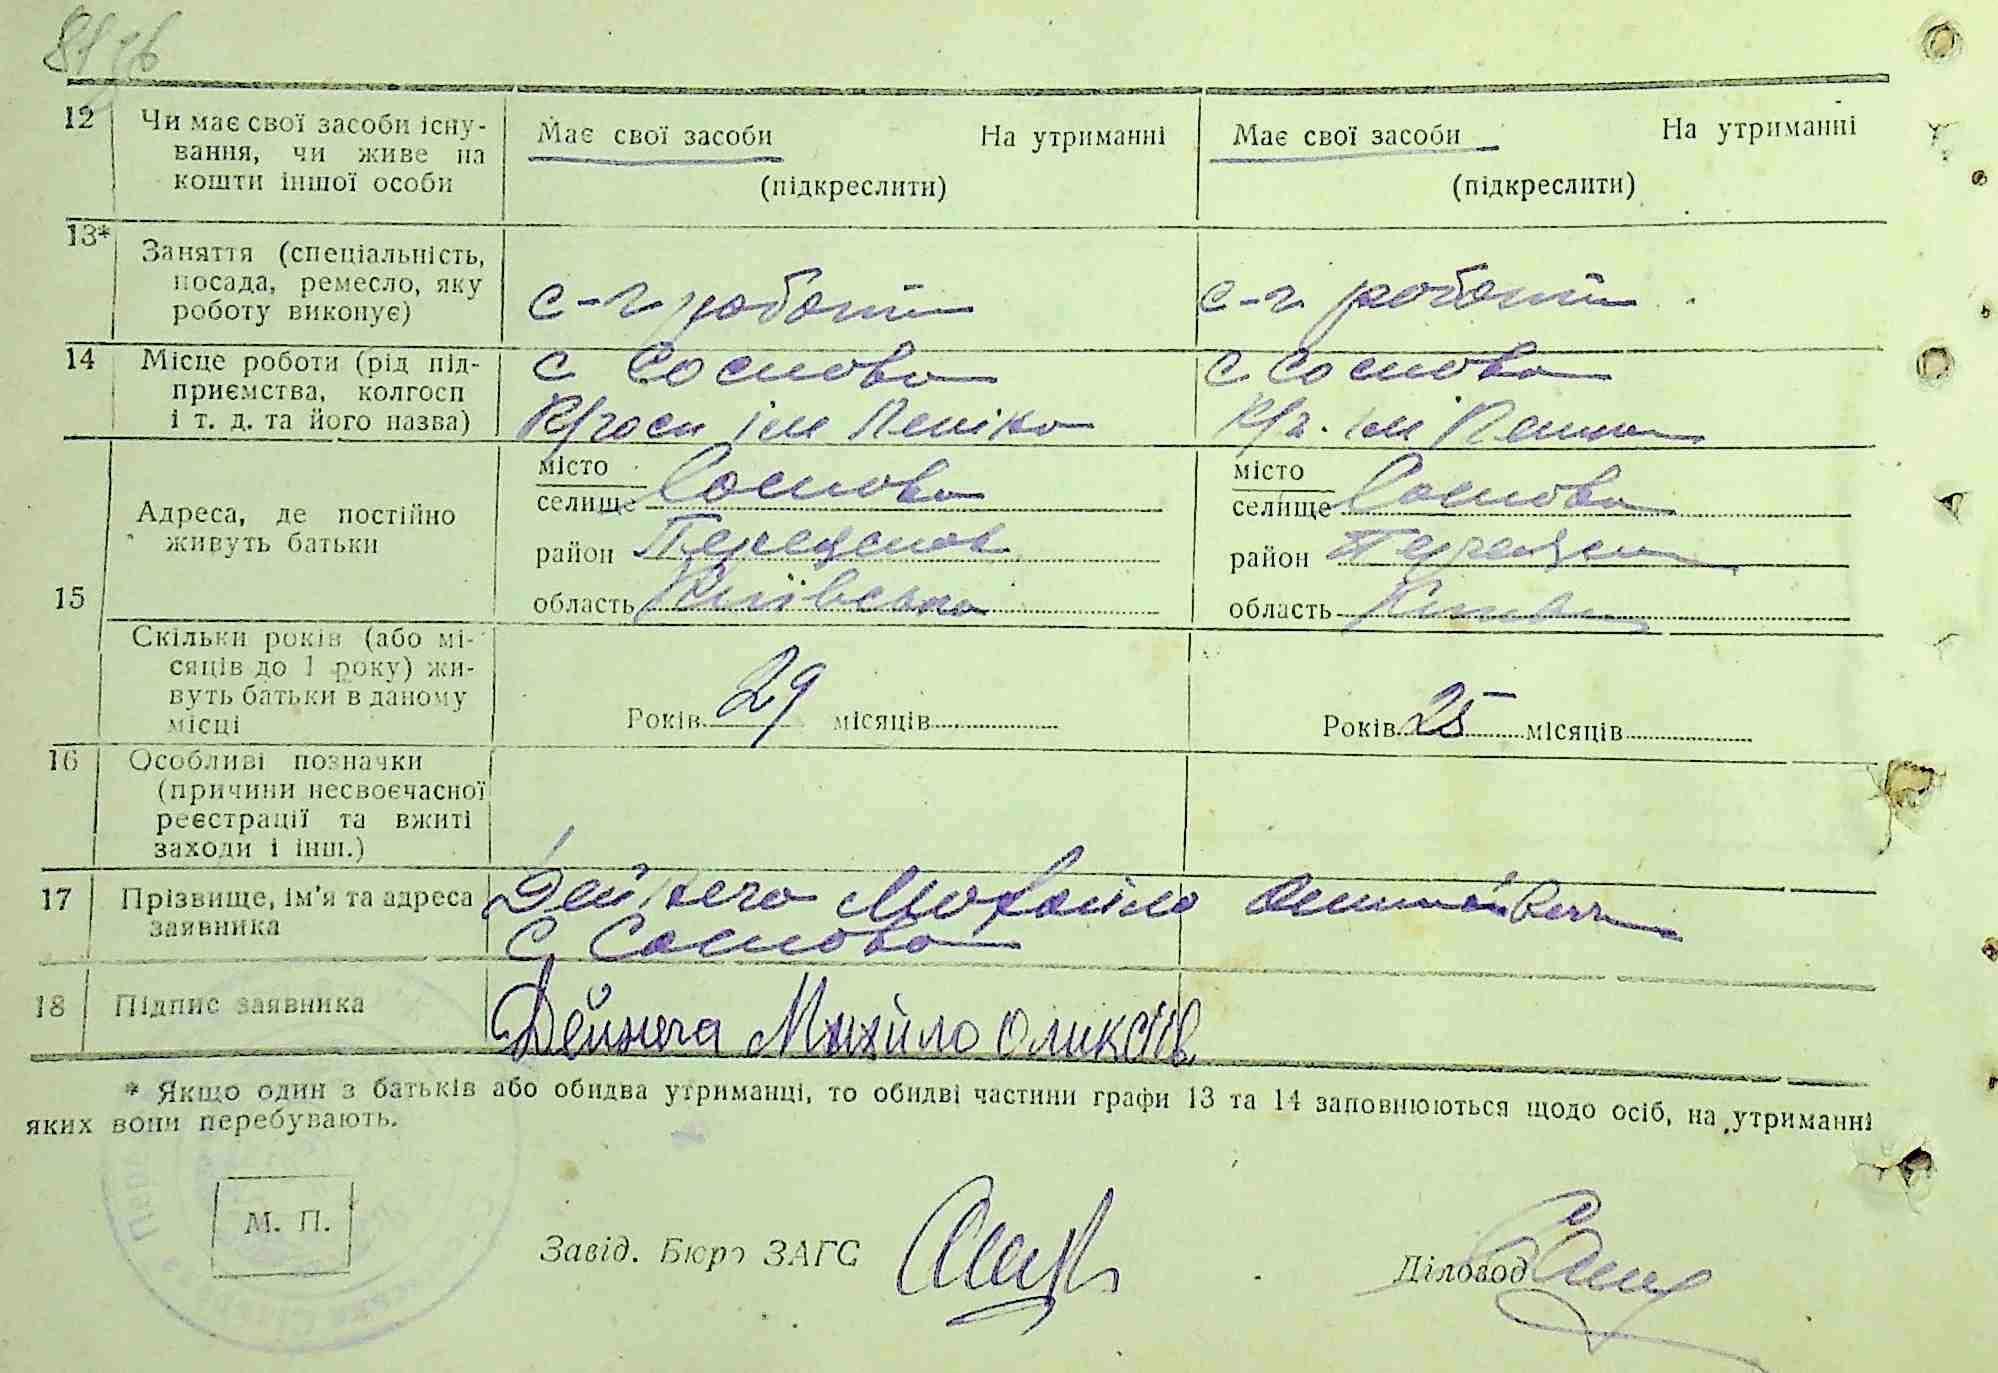 12 Чи має свої засоби існу-
вання, чи живе на
кошти іншої особи
Має свої засоби На утриманні
(підкреслити)
Має свої засоби На утриманні
(підкреслити)
13* Заняття (спеціальність,
посада, ремесло, яку
роботу виконує)
с-г роботи
с-г роботи
14 Місце роботи (рід під-
приємства, колгосп
і т. д. та його назва)
с Соснова
ім Леніна
с Соснова
ім Леніна
15 Адреса, де постійно
живуть батьки
місто
селище Соснова
район
область Київська
місто
селище Соснова
район
область
Скільки років (або мі-
сяців до 1 року) жи-
вуть батьки в даному
місці
Років 29 місяців
Років 25 місяців
16 Особливі позначки
(причини несвоєчасної
реєстрації та вжиті
заходи і інш.)
17 Прізвище, ім'я та адреса
заявника
Дейнега Михайло
с Соснова
18 Підпис заявника
Дейнега Михайло
* Якщо один з батьків або обидва утриманці, то обидві частини графи 13 та 14 заповнюються щодо осіб, на утриманні
яких вони перебувають.
М. П.
Завід. Бюро ЗАГС
Діловод